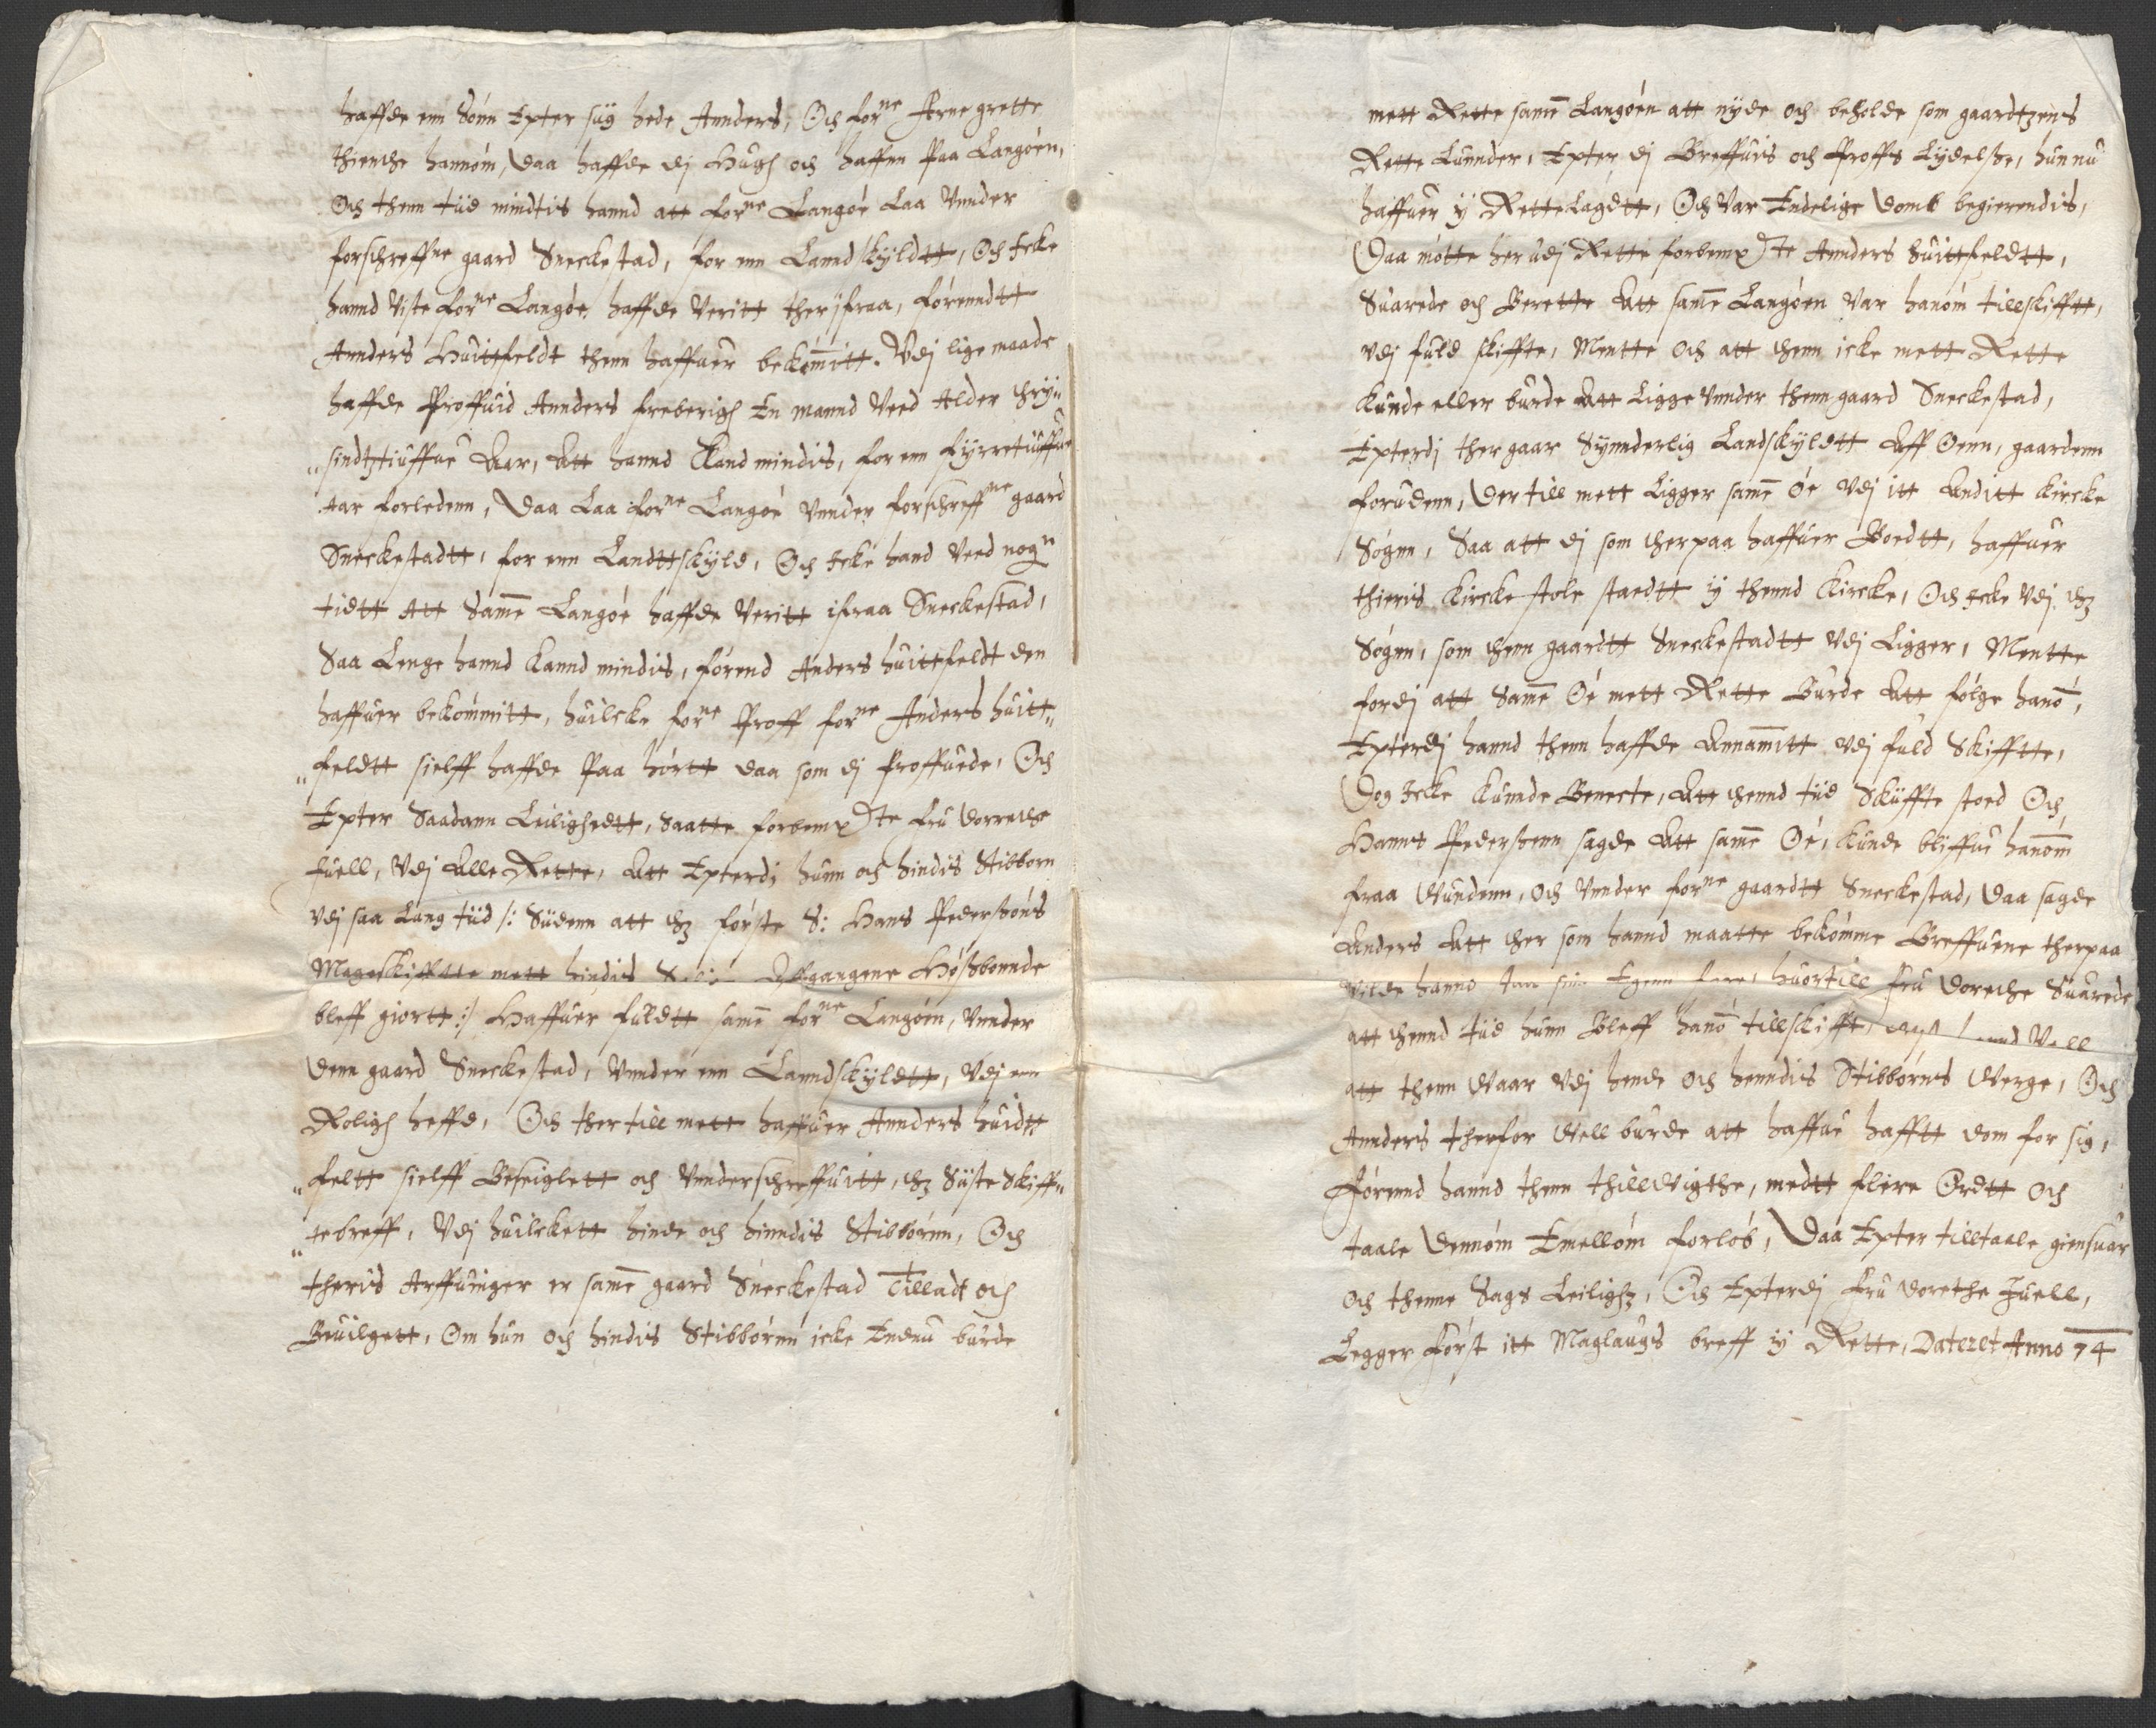 haffde enn Sónn Epter siig hede Annders, Och for^ne Arne grette
thiente hannóm, Daa haffde dj Hûgh och haffnn Paa Langóen,
Och thenn tiid mindtis hannd att for^ne Langóe Laa Vnnder
forschreff^ne gaard Sneckestad, for enn Lanndskyldtt, Och Icke
hannd viste for^ne Langóe, haffde Veritt ther ifraa, fórenndtt
Annders Hûittfeldt thenn haffuer bekómmitt. Vdj lige maade
haffde Proffuid Annders freberigh En mannd Veed Alder thry„
„sindtztiuffue Aar, Att hannd Kand mindis, for enn Fyrretiuffue
Aar forledenn, Daa Laa for^ne Langóe Vnnder forschreff^ne gaard
Sneckestadtt, for enn Landttskyld, Och Icke hand Veed nog^n
tidtt Att Samme Langóe haffde Veritt ifraa Sneckestad,
Saa Lenge hannd Kannd mindis, fórend Anders huittfeldt den
haffuer bekómmitt, huilcke for^ne Proff for^ne Anders huitt„
„feldtt sielff haffde Paa hórtt daa som dj Proffuede, Och
Epter Saadann Leilighedtt, Saatte forbem^te Fru Dorrethe
Juell, Vdj Alle Rette, Att Epterdj hûnn och hindis Stibborn
Vdj saa Lang tiid /: Sûdenn att thz fórste S: Hans Pedersóns
Mageskifftte mett hindis Affgangene Hósbonnde
bleff giortt :/ Haffuer fûldtt same for^ne Langóen, Vnnder
denn gaard Sneckestad, Vnnder enn Lanndskyldtt, Vdj enn
Roligh heffd, Och ther till mett haffuer Annders huidtt
„feltt sielff Beseiglett och Vnnderschreffuitt, thz Siiste Skiff„
„tebreff, Vdj huilckett hinde och hinndis Stibbórnn, Och
theris Arffuinger er same gaard Sneckestad Tilladt och
Beuilgett, Om hun och hindis Stibbórnn icke Endnû bûrde
mett Rette same Langóen att nyde och beholde som gaardtzens
Rette Lunnder, Epter dj Breffuis och Proffs Lydelsze, hûn nû
haffuer y Rette Lagdtt, Och Var Endelige domb begierendis,
Daa mótte herudj Rette forbem^te Annders huittfeldtt,
Suarede och Berette Att same Langóen Var hanóm tillskifftt,
vdj fuld skiffte, Mentte och att thenn icke mett Rette
Kunde eller burde Att Ligge Vnnder thenn gaard Sneckestad,
Epterdj ther gaar Synnderlig Landskyldtt Aff Óenn, gaardenn
forudenn, Der till mett Ligger same óe Vdj itt Anditt Kircke
Sógnn, Saa att dj som therpaa haffuer Boedtt, haffuer
thieris Kircke stole staedtt y thennd Kircke, Och Icke Vdj thz
Sógnn, som thenn gaardtt Sneckestadtt Vdj Ligger, Mentte
fordj att Same Óe mett Rette Bûrde Att fólge hanó,
Epterdj hannd thenn haffde Annamitt Vdj fuld Skifftte,
Dog Icke Kunnde Benecte, Att thennd tiid Skiffte stoed Och
Hanns Pederszenn sagde Att same Óe, Kunde bliffue hanóm
fraa Vûndenn, och Vnnder for^ne gaardtt Sneckestad, Daa sagde
Anders Att ther som hannd maatte bekómme Breffuene therpaa
Vilde hannd sin Egenn huortill Fru Dorethe Suarede
att thennd tiid hunn Bleff hanó tillskifft, Vell
att thenn Vaar Vdj hende och henndis Stibbórns Verge, Och
Annders therfor Vell bûrde att haffue hafftt dom for sig,
Fórennd hannd thenn thillVigthe, medtt flere Ordtt och
taale dennóm Emellóm forlób, Daa Epter tilltaale giensuar
och thenne Sags Leilighz, Och Epterdj Fru Dorethe Juell,
Legger Fórst itt Maglaugs breff y Rette, Dateret Anno 74